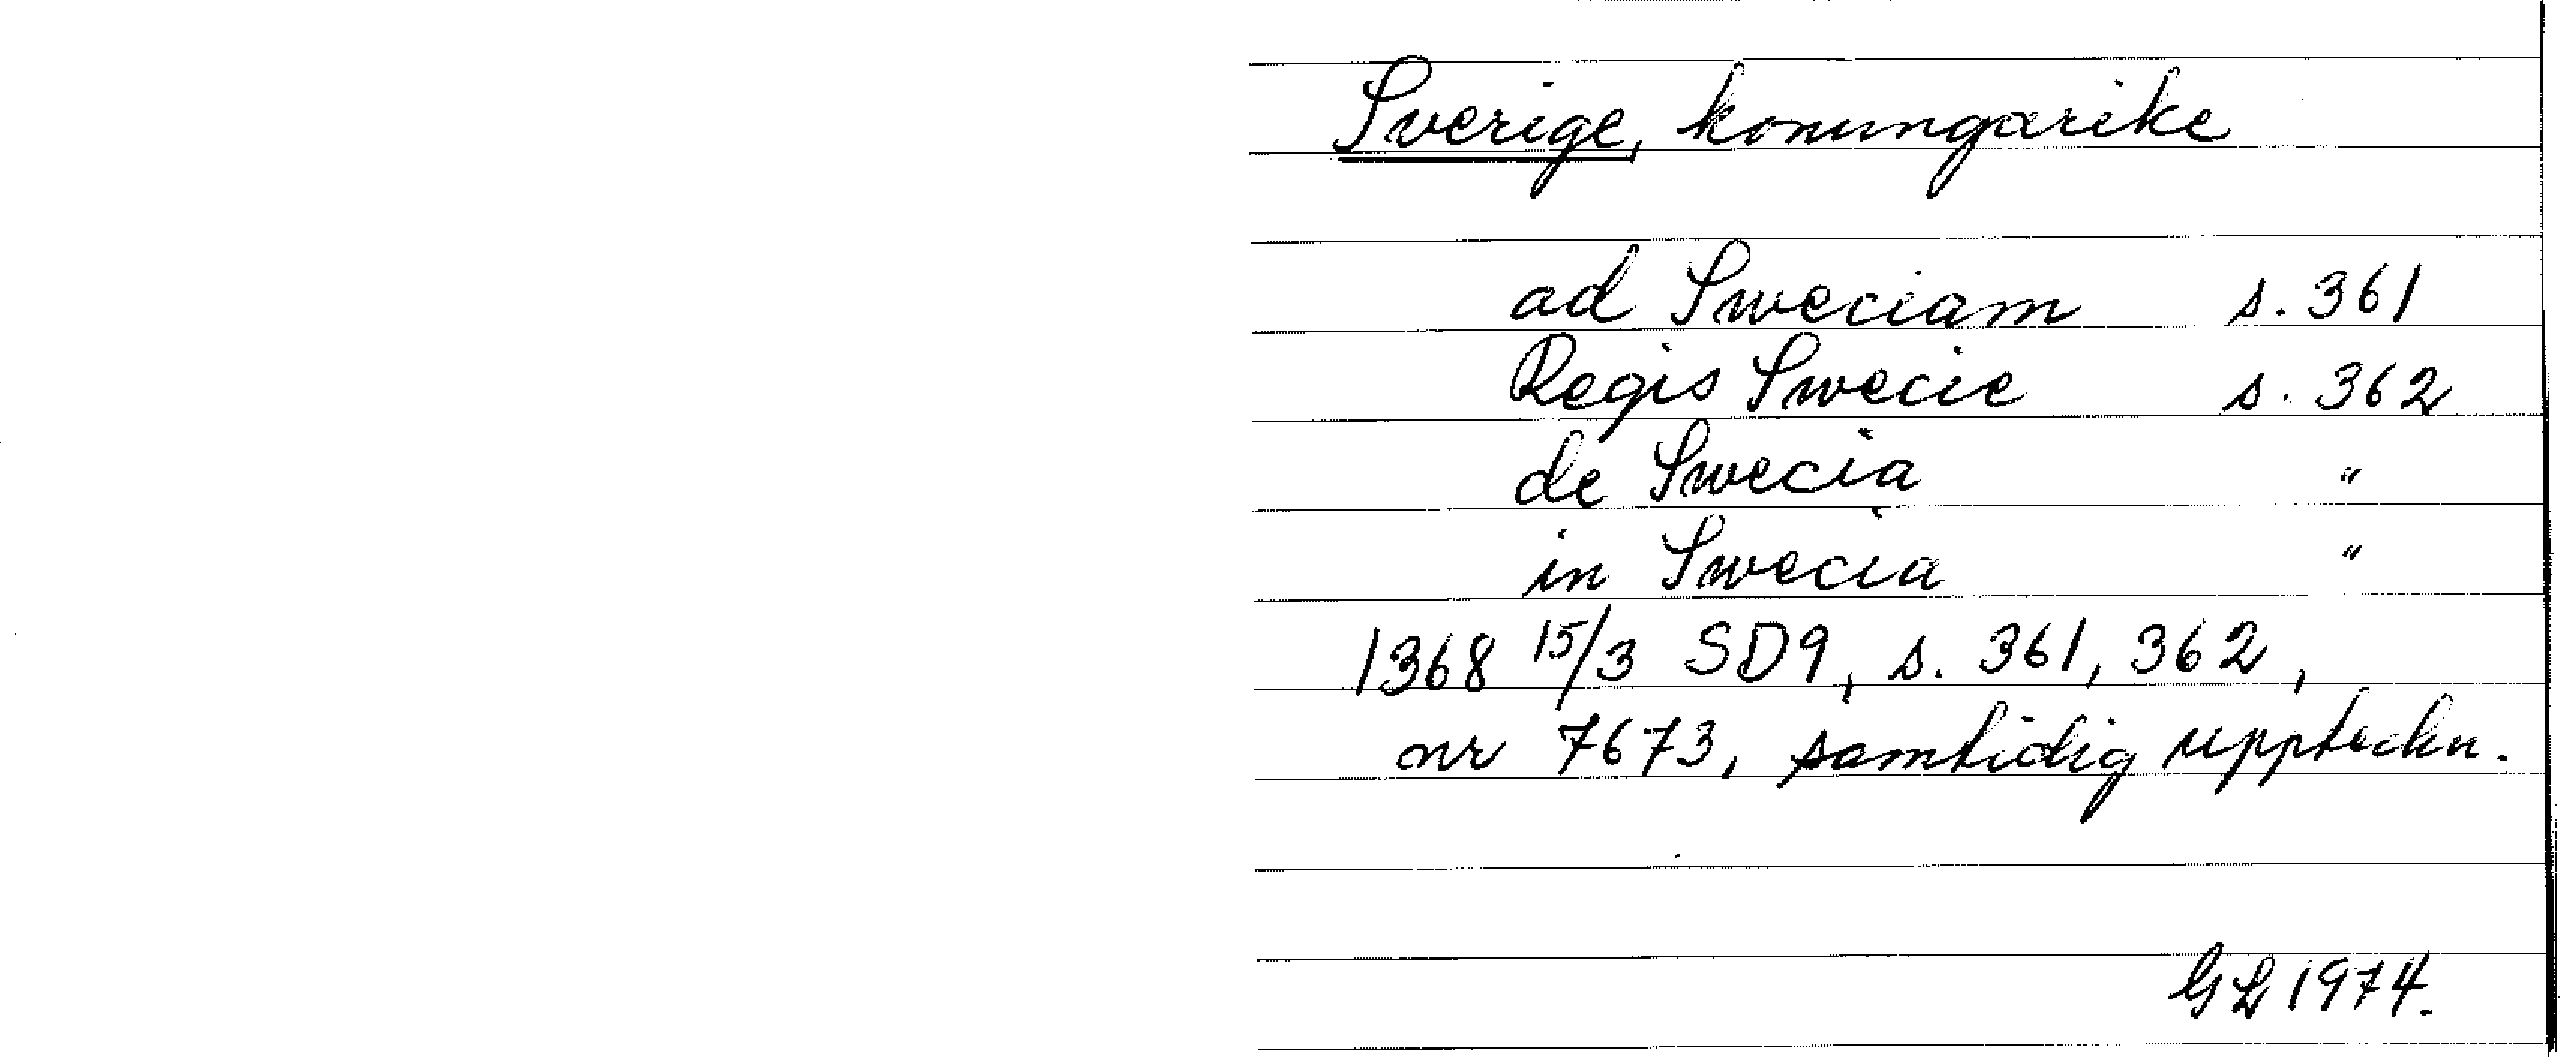 Sverige, konungarike
ad Sweciam s. 361
Regis Swecie s. 362
de Swecia "
in Swecia "
1368 15/3 SD9, s. 361, 362,
nr 7673, samtidig uppteckn.
GL 1974.